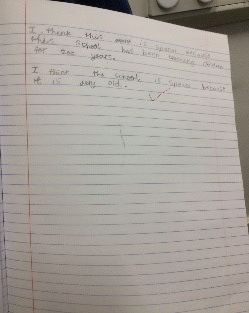 I think this event is special because
this school has been teaching children
for 200 years.
I think the school is special because
it is very old.